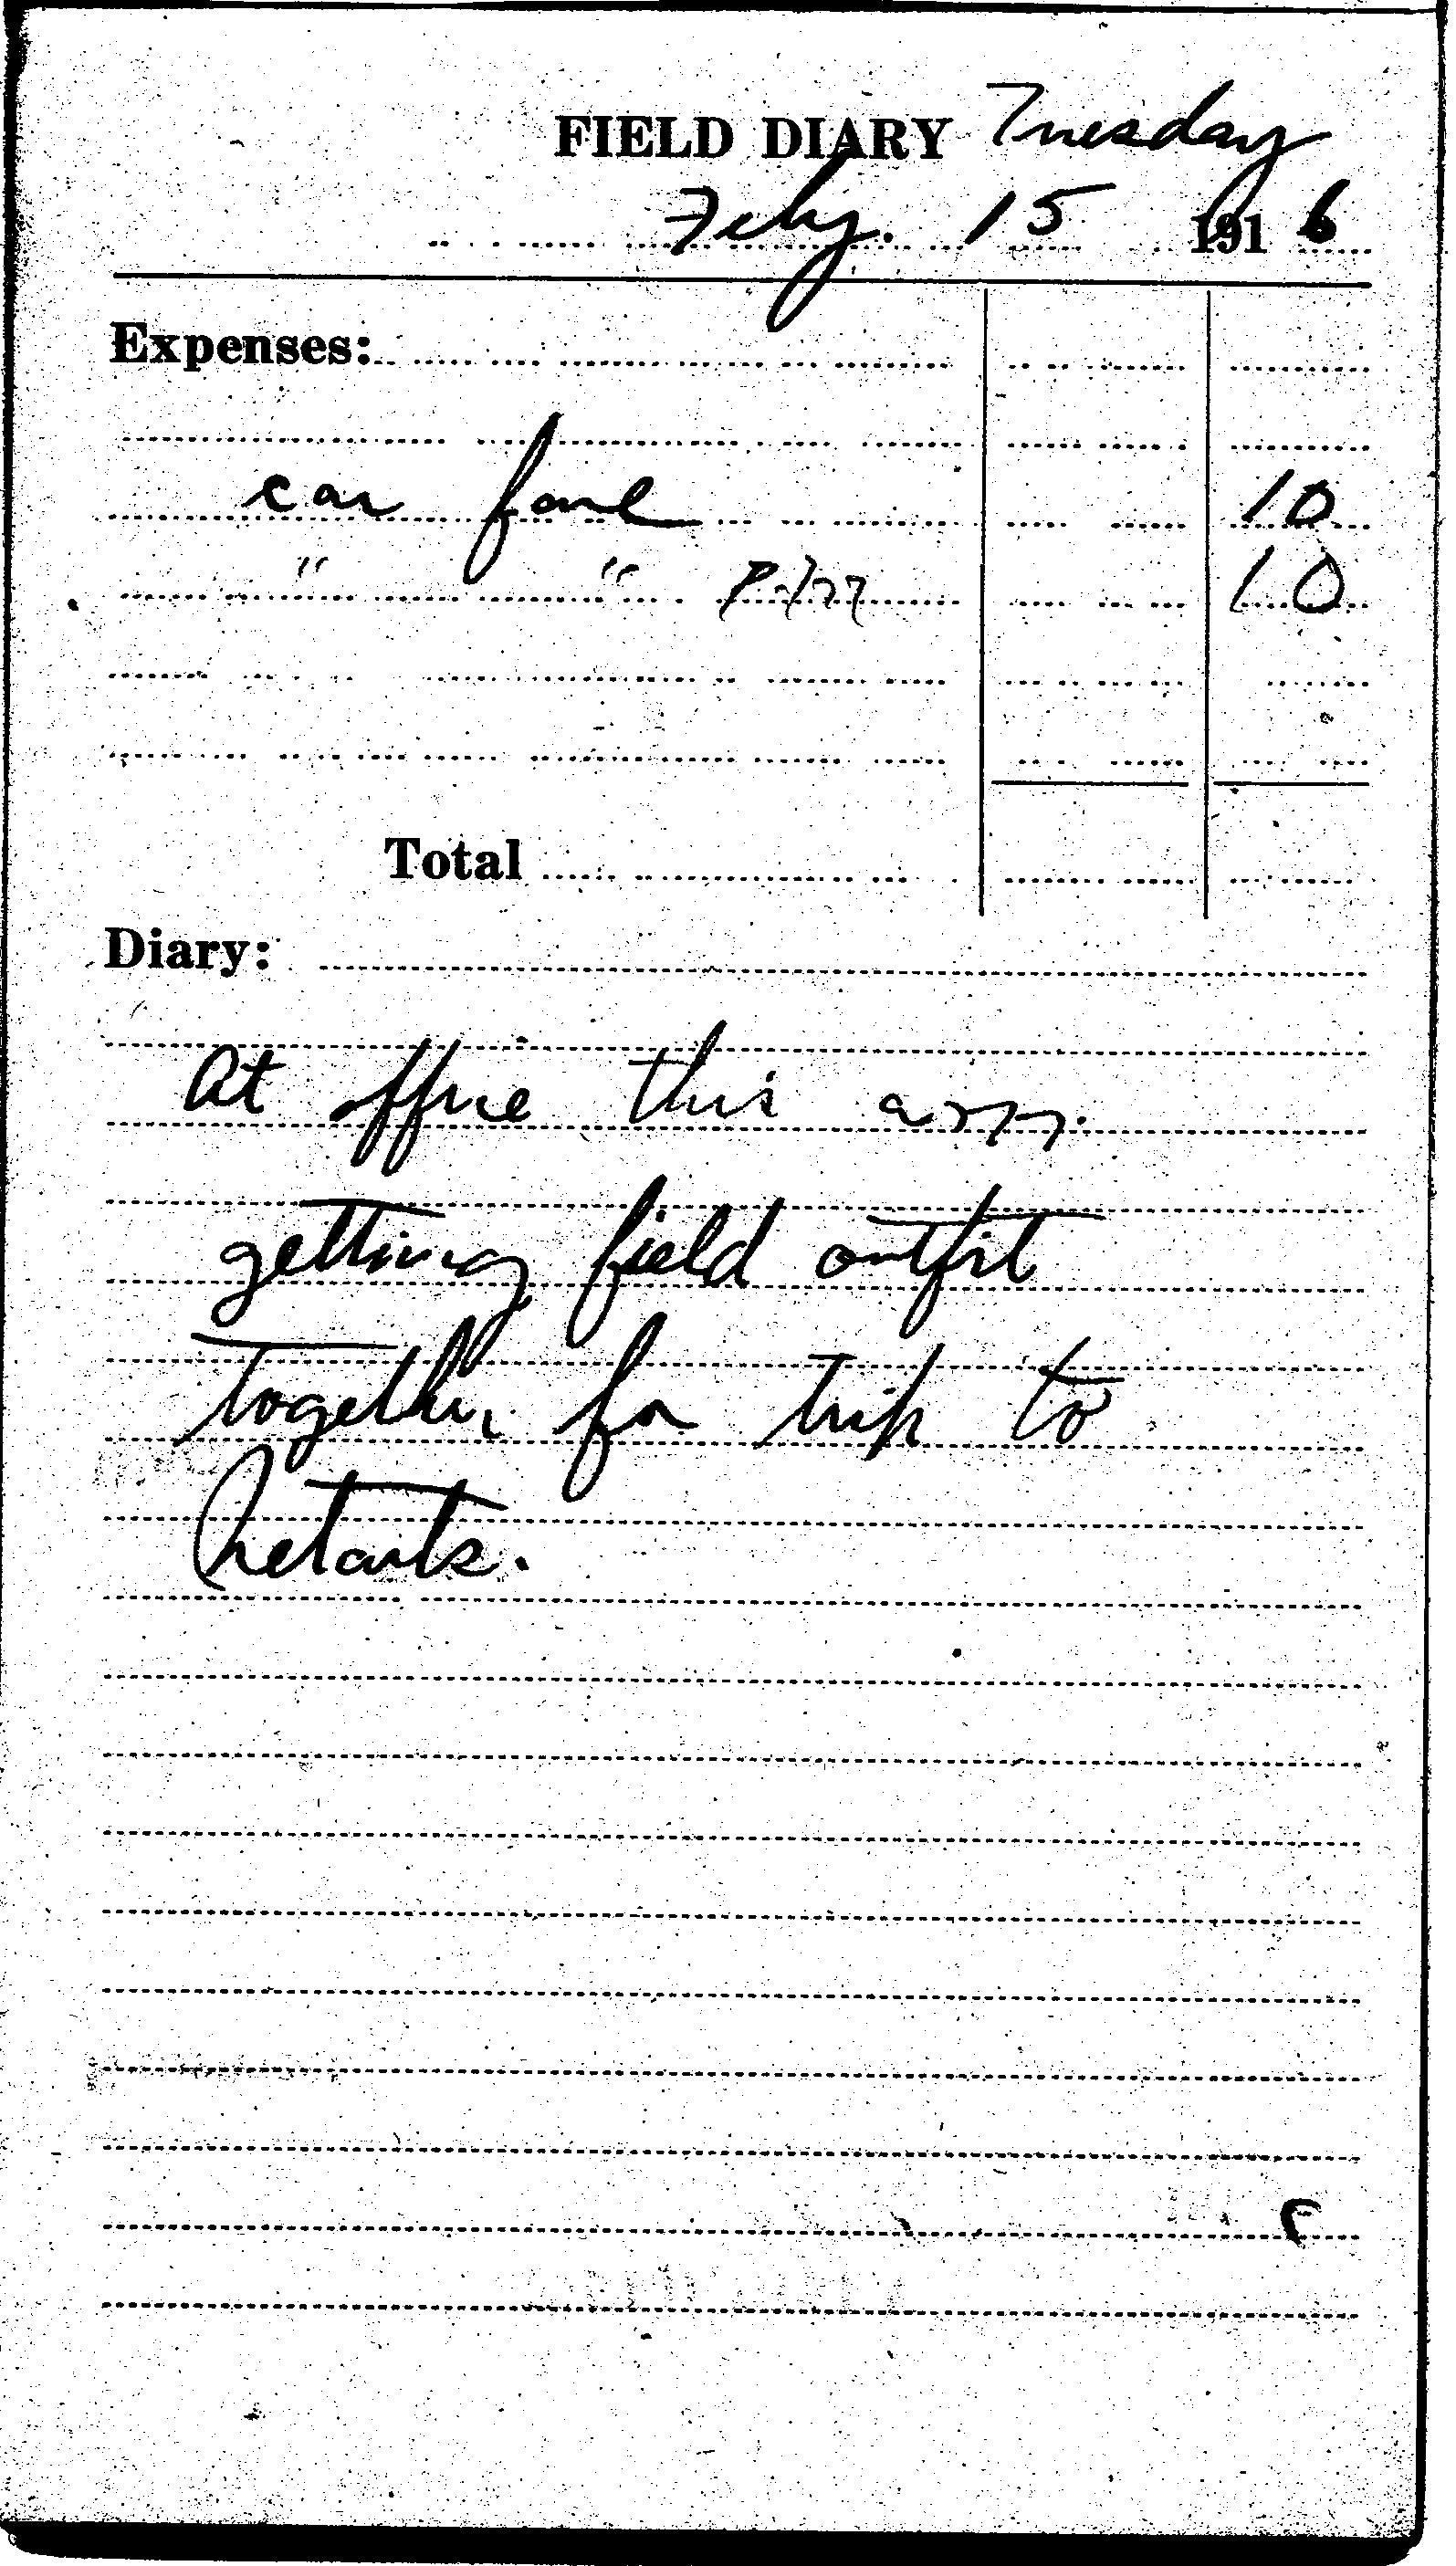 FIELD DIARY Tuesday
Feby. 15 1916
Expenses:
car fare 10
" " P.M 10
Total
Diary:
At office this a.m.
getting field outfit
together for trip to
Netarts.